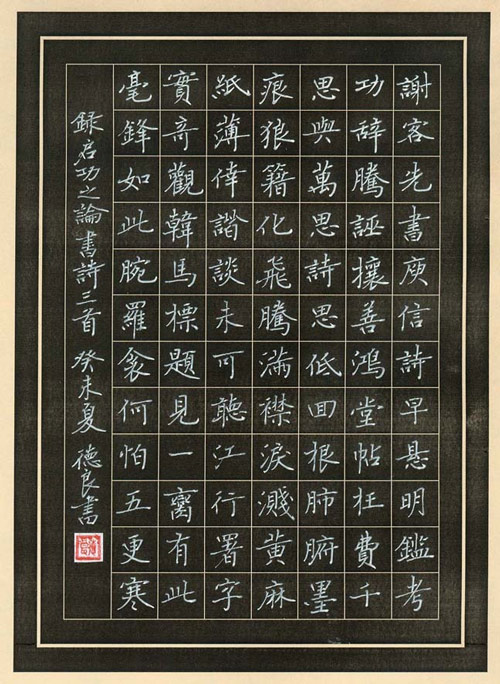 謝客先書庾信詩早悬明鑑考
功辞騰誣攘善鴻堂帖枉費千
思與萬思詩思低回根肺腑墨
痕狼籍化飛騰滿襟淚濺黃麻
紙薄倖諧談未可聽江行署字
實奇觀韓馬標題見一臠有此
毫鋒如此腕羅衾何怕五更寒
錄启功之論書詩三首 癸未夏 德良書